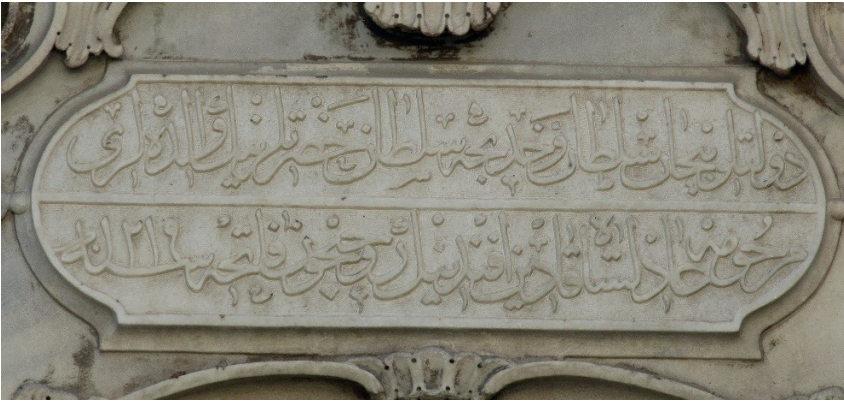 دولتلو بيخان سلطان و خديجه سلطان حضرتلرينك والده لرى
مرحومه عادلشاه قادين افندينك روحيچون فاتحه سنه ١٢١٩